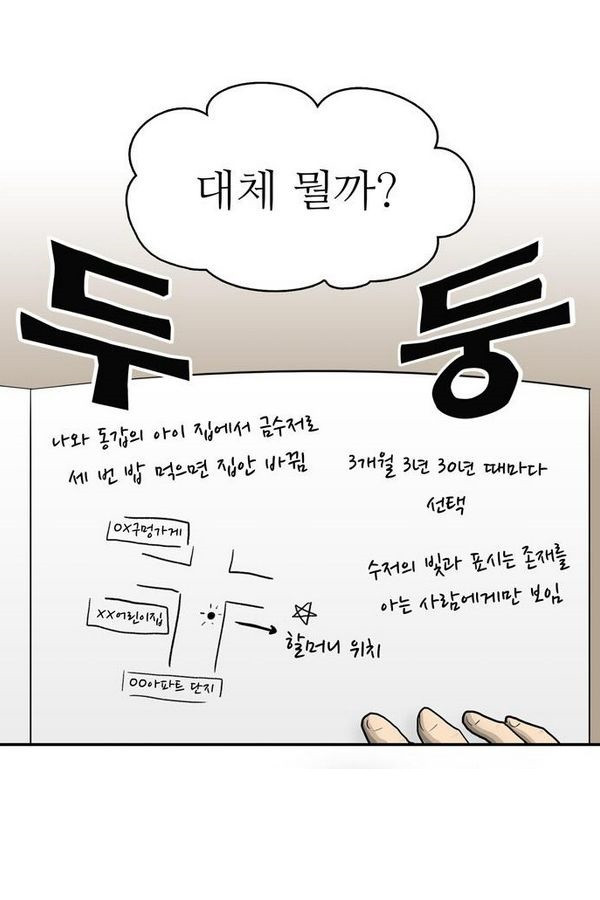 대체 뭘까?
두 둥
나와 동갑의 아이 집에서 금수저로
세 번 밥 먹으면 집안 바뀜
3개월 3년 30년 때마다
선택
수저의 빛과 표시는 존재를
아는 사람에게만 보임
OX구멍가게
XX어린이집
할머니 위치
OO아파트 단지